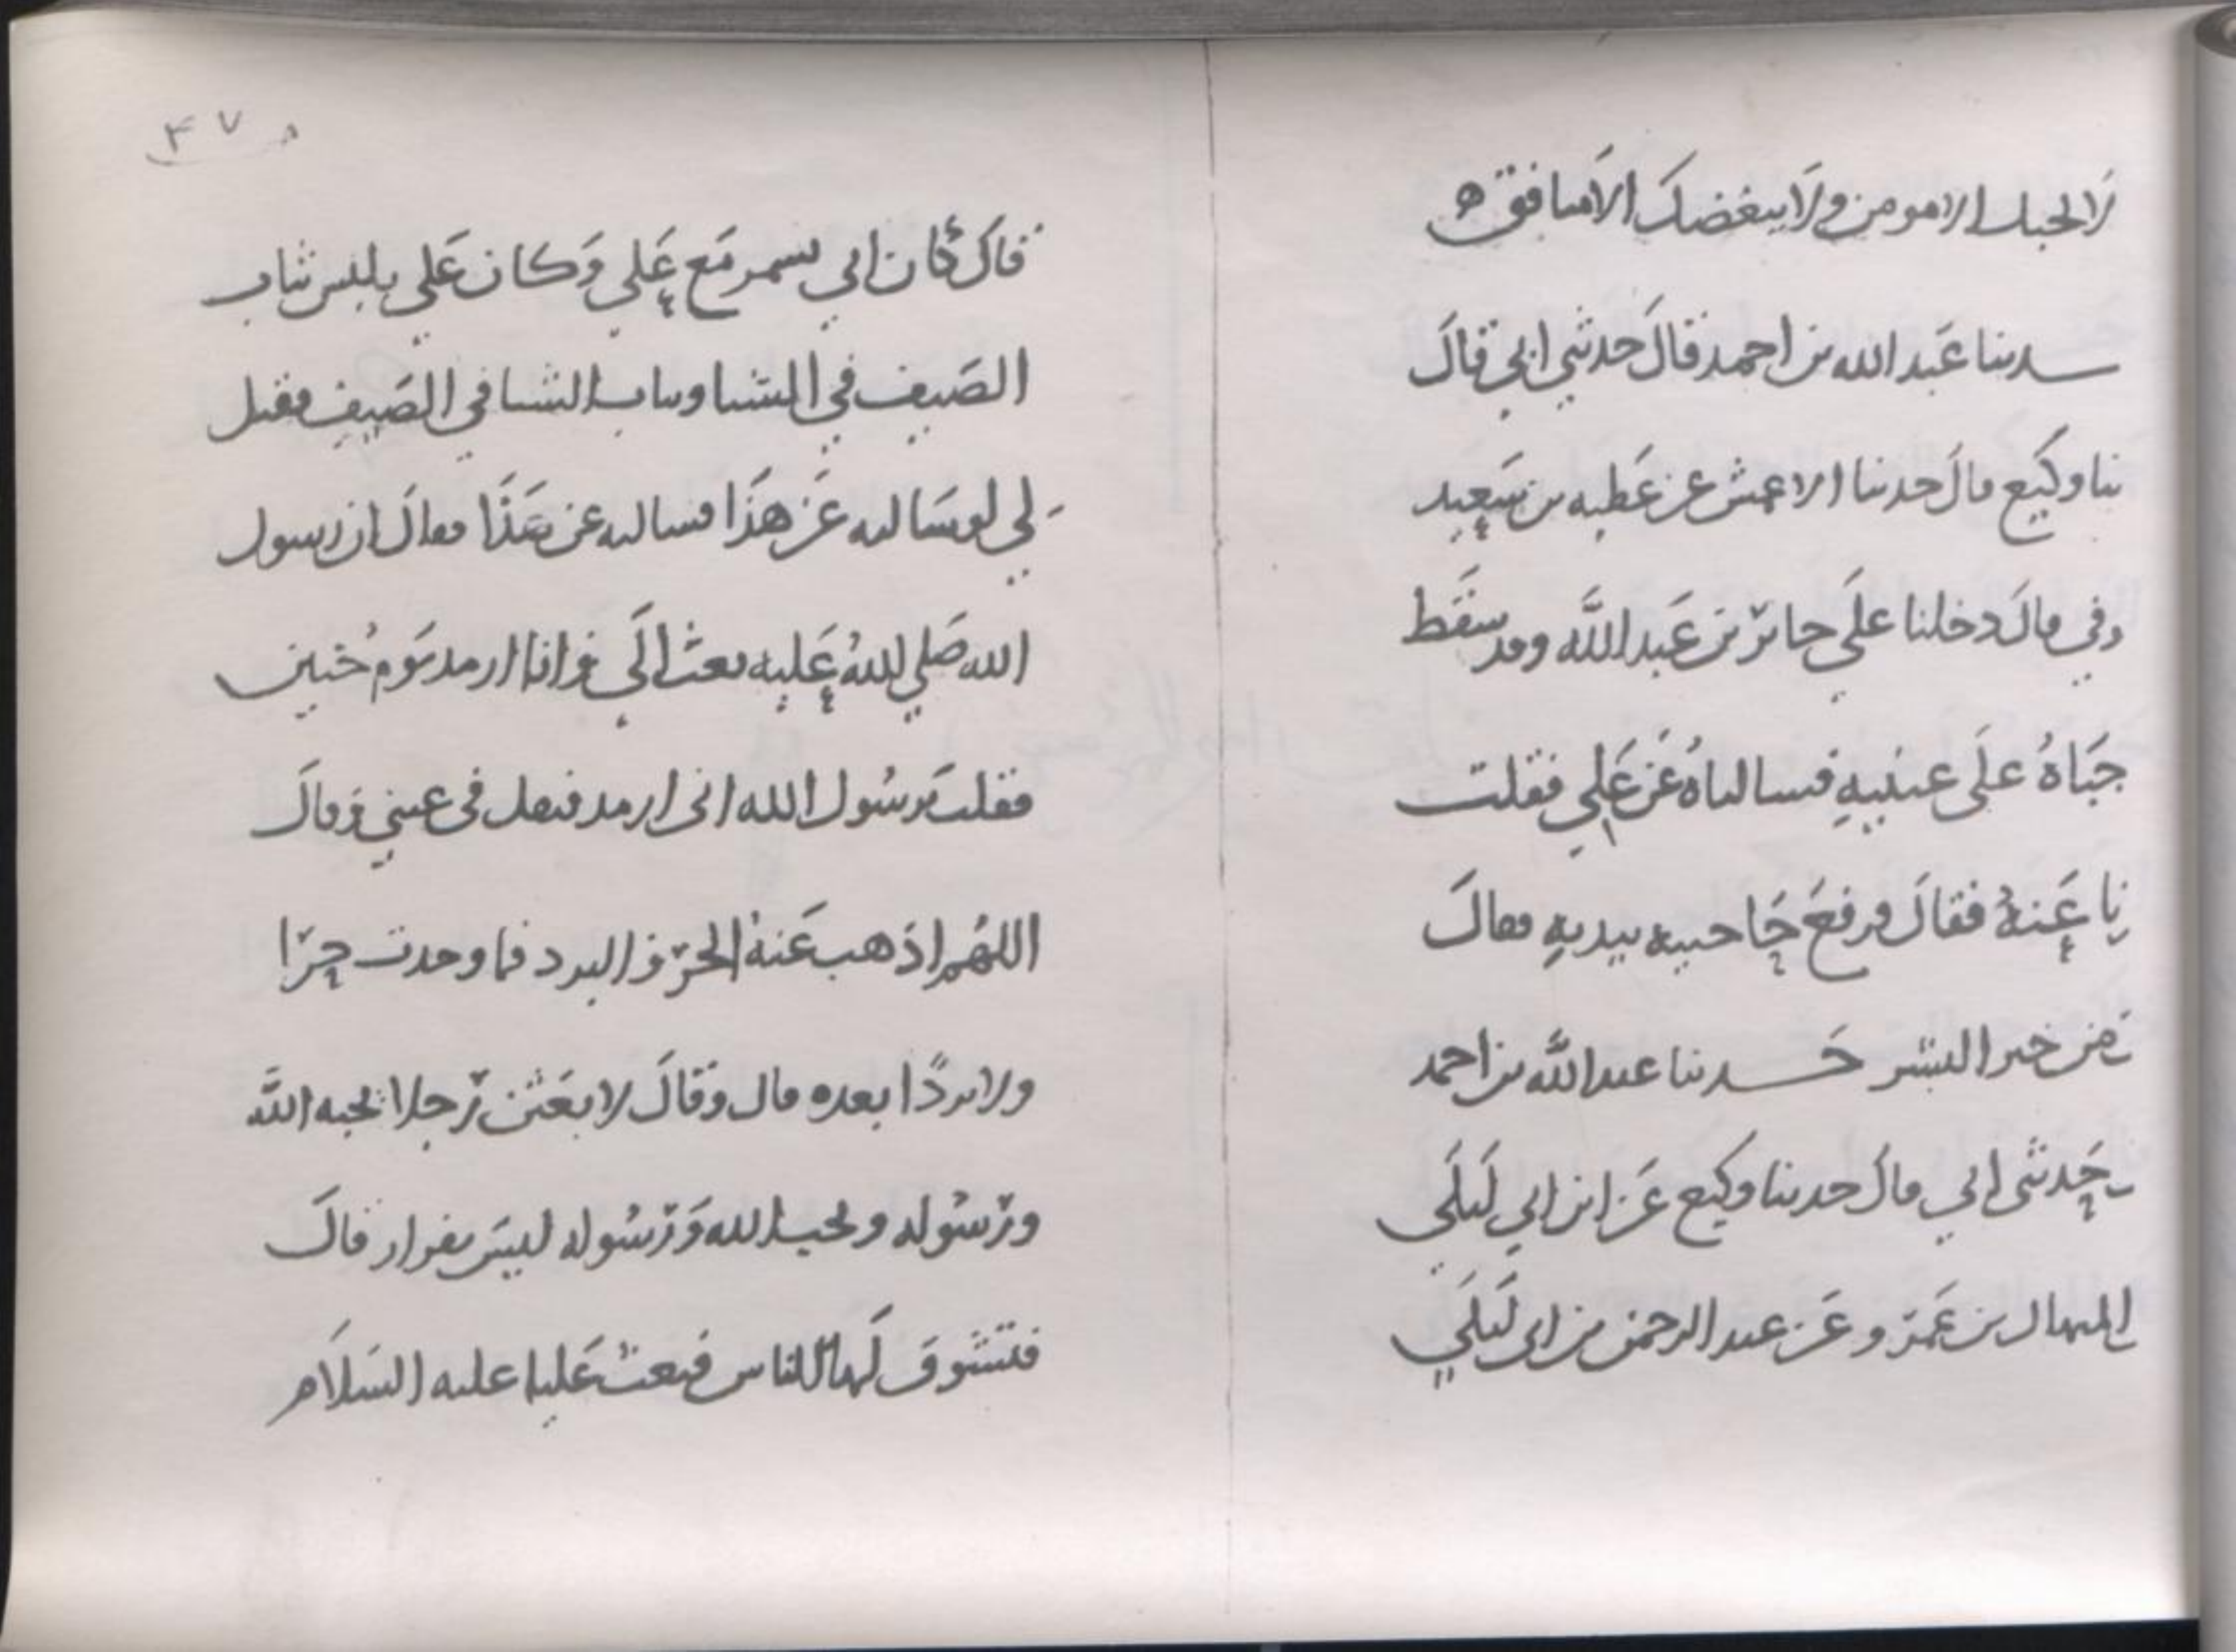 لا يحبك الا مومن ولا يبغضك الا منافق ه
حدثنا عبد الله بن احمد قال حدثني ابي قال
ثنا وكيع قال حدثنا الاعمش عن عطيه بن سعيد
العوفي قال دخلنا علي جابر بن عبد الله وقد سقط
حاجباه على عينيه فسالناه عن علي فقلت
اخبرنا عنه فقال فرفع حاجبيه بيديه فقال
ذاك من خير البشر حدثنا عبد الله بن احمد
حدثني ابي قال حدثنا وكيع عن ابن ابي ليلى
المنهال بن عمرو عن عبد الرحمن بن ابي ليلي
٤٧
قال كان ابي يسمر مع علي وكان علي يلبس ثياب
الصيف في الشتا وثياب الشتا في الصيف فقيل
لي لو سالته عن هذا فسالته عن هذا فقال ان رسول
الله صلي الله عليه بعث الي وانا ارمد يوم خيبر
فقلت يرسول الله انى ارمد فتفل فى عيني وقال
اللهم اذهب عنه الحر والبرد فما وجدت حرا
ولا بردا بعده قال وقال لابعثن رجلا يحبه الله
ورسوله ويحب الله ورسوله ليس بفرار قال
فتشوف لها الناس فبعث عليا عليه السلام